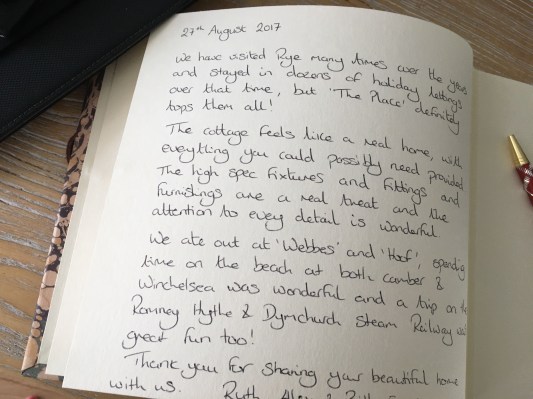 27th August 2017
We have visited Rye many times over the years
and stayed in dozens of holiday lettings
over that time, but 'The Place' definitely
tops them all!
The cottage feels like a real home, with
everything you could possibly need provided
The high spec fixtures and fittings and
furnishings are a real treat and the
attention to every detail is wonderful
We ate out at 'Webbes' and 'Hoof', spending
time on the beach at both camber &
Winchelsea was wonderful and a trip on the
Romney Hythe & Dymchurch Steam Railway was
great fun too!
Thank you for sharing your beautiful home
with us. Ruth,